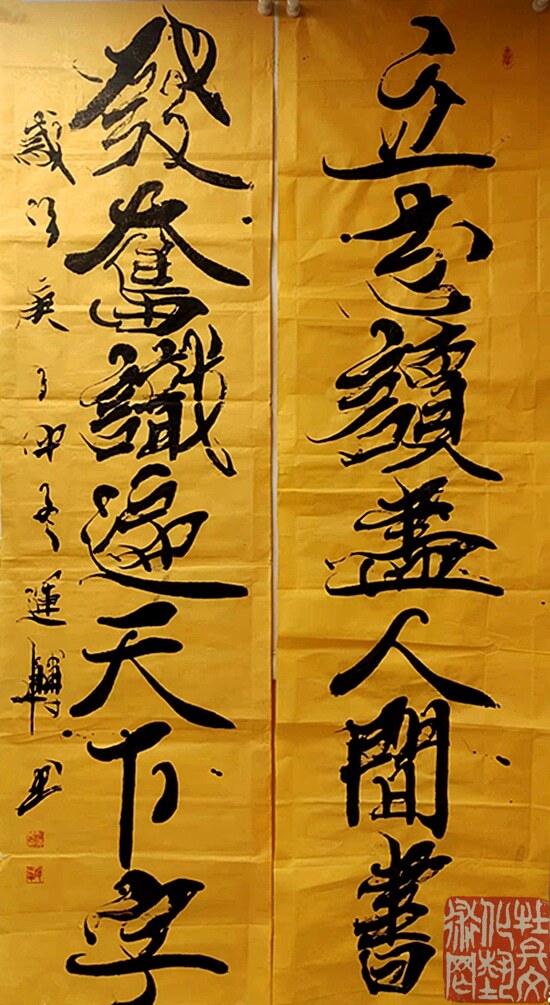 立志讀盡人間書
發奮識遍天下字
歲次庚子仲冬運轉書